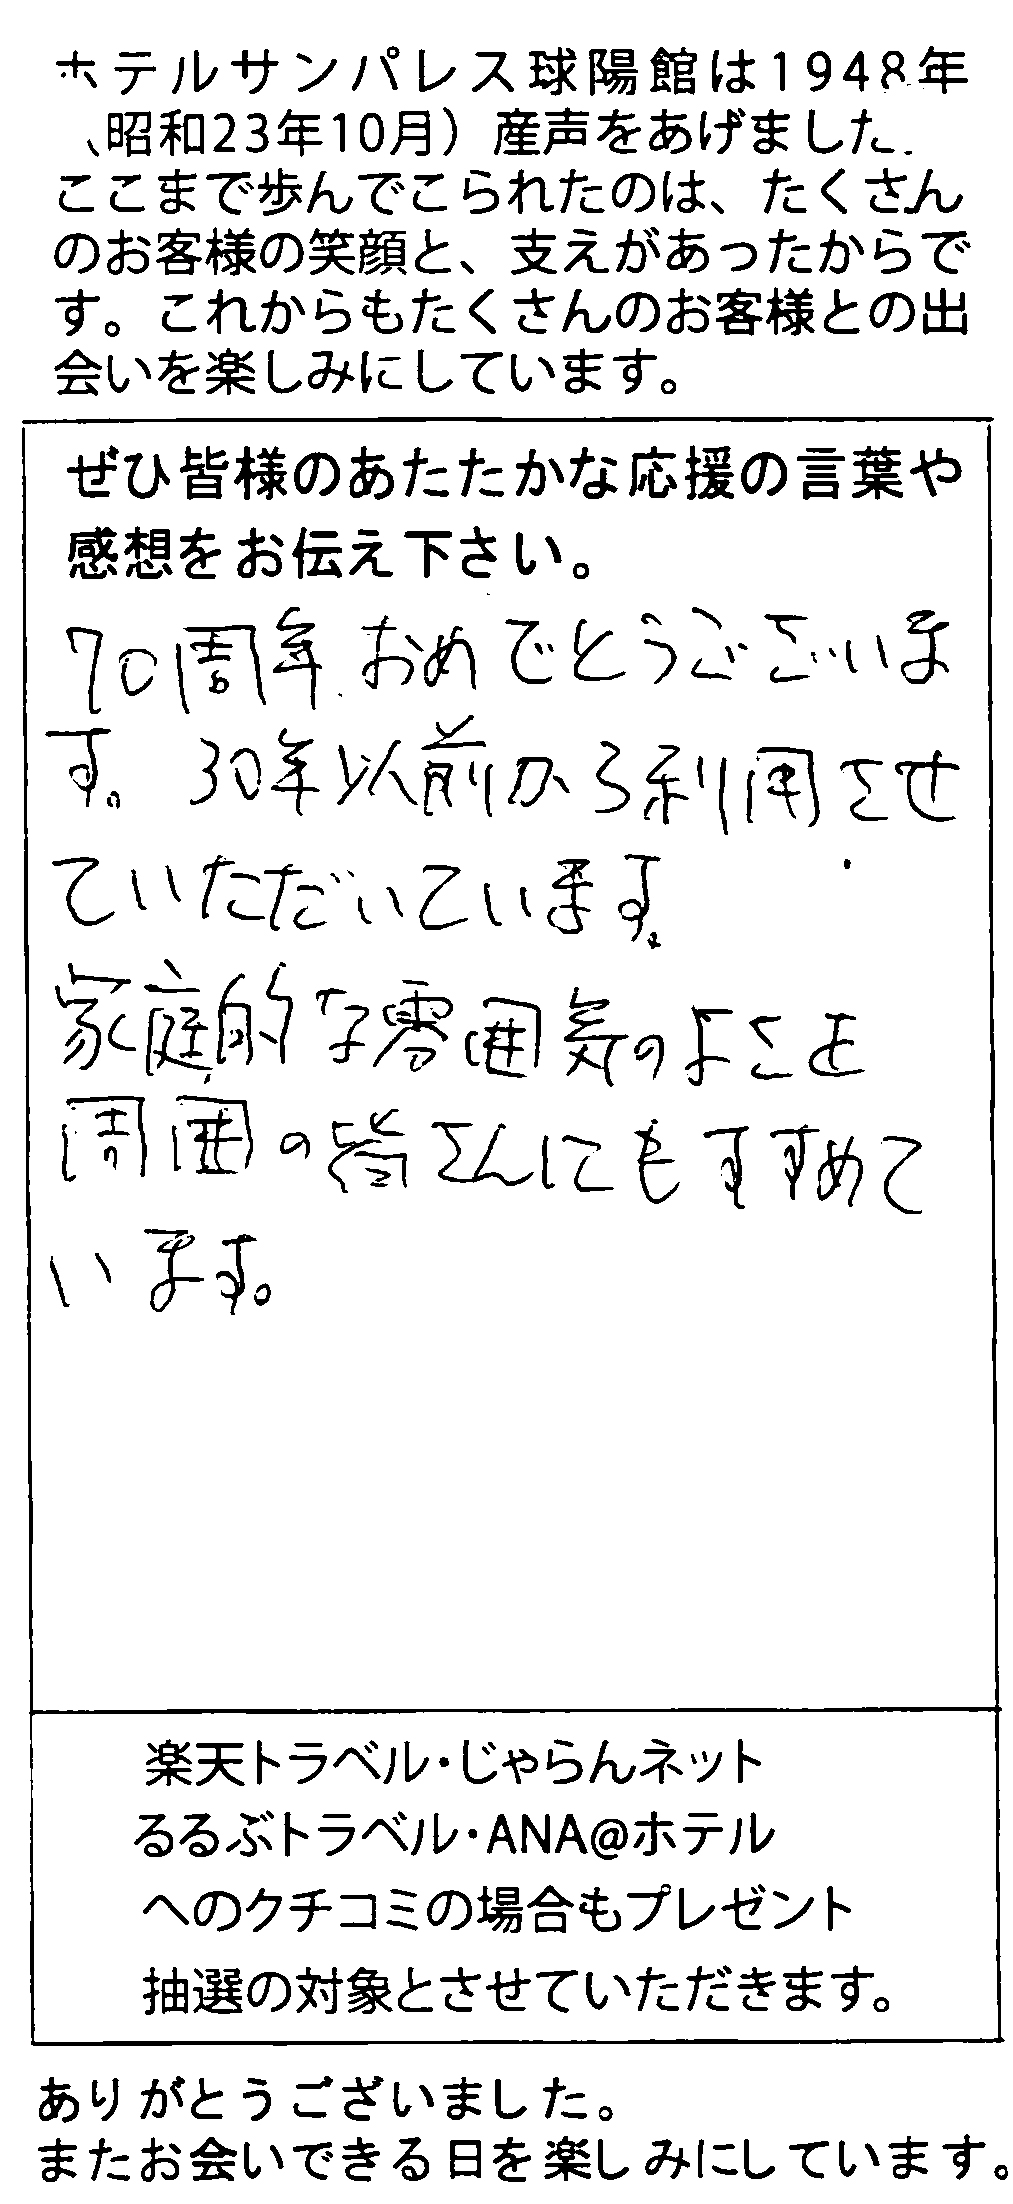 ホテルサンパレス球陽館は1948年
（昭和23年10月）産声をあげました。
ここまで歩んでこられたのは、たくさん
のお客様の笑顔と、支えがあったからで
す。これからもたくさんのお客様との出
会いを楽しみにしています。
ぜひ皆様のあたたかな応援の言葉や
感想をお伝え下さい。
70周年おめでとうございま
す。30年以前から利用させ
ていただいています。
家庭的な雰囲気のよさを
周囲の皆さんにもすすめて
います。
楽天トラベル・じゃらんネット
るるぶトラベル・ANA@ホテル
へのクチコミの場合もプレゼント
抽選の対象とさせていただきます。
ありがとうございました。
またお会いできる日を楽しみにしています。